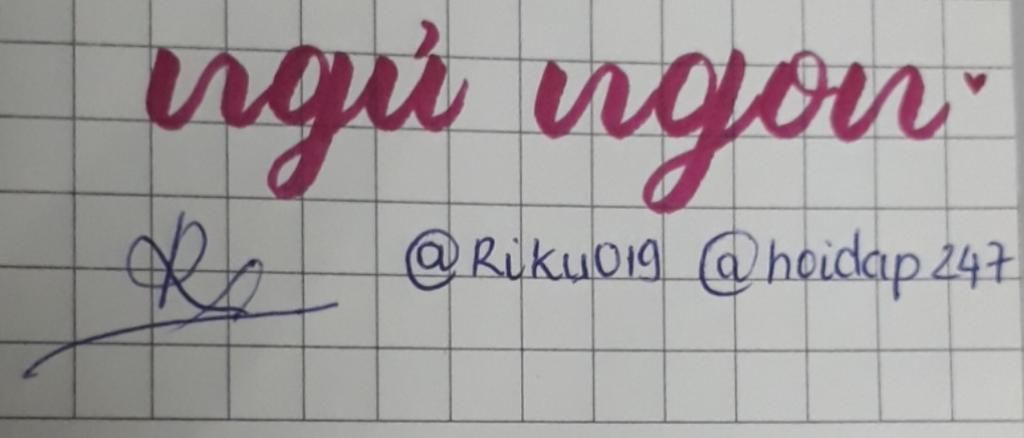 ngủ ngon
@Riku019 @hoidap247